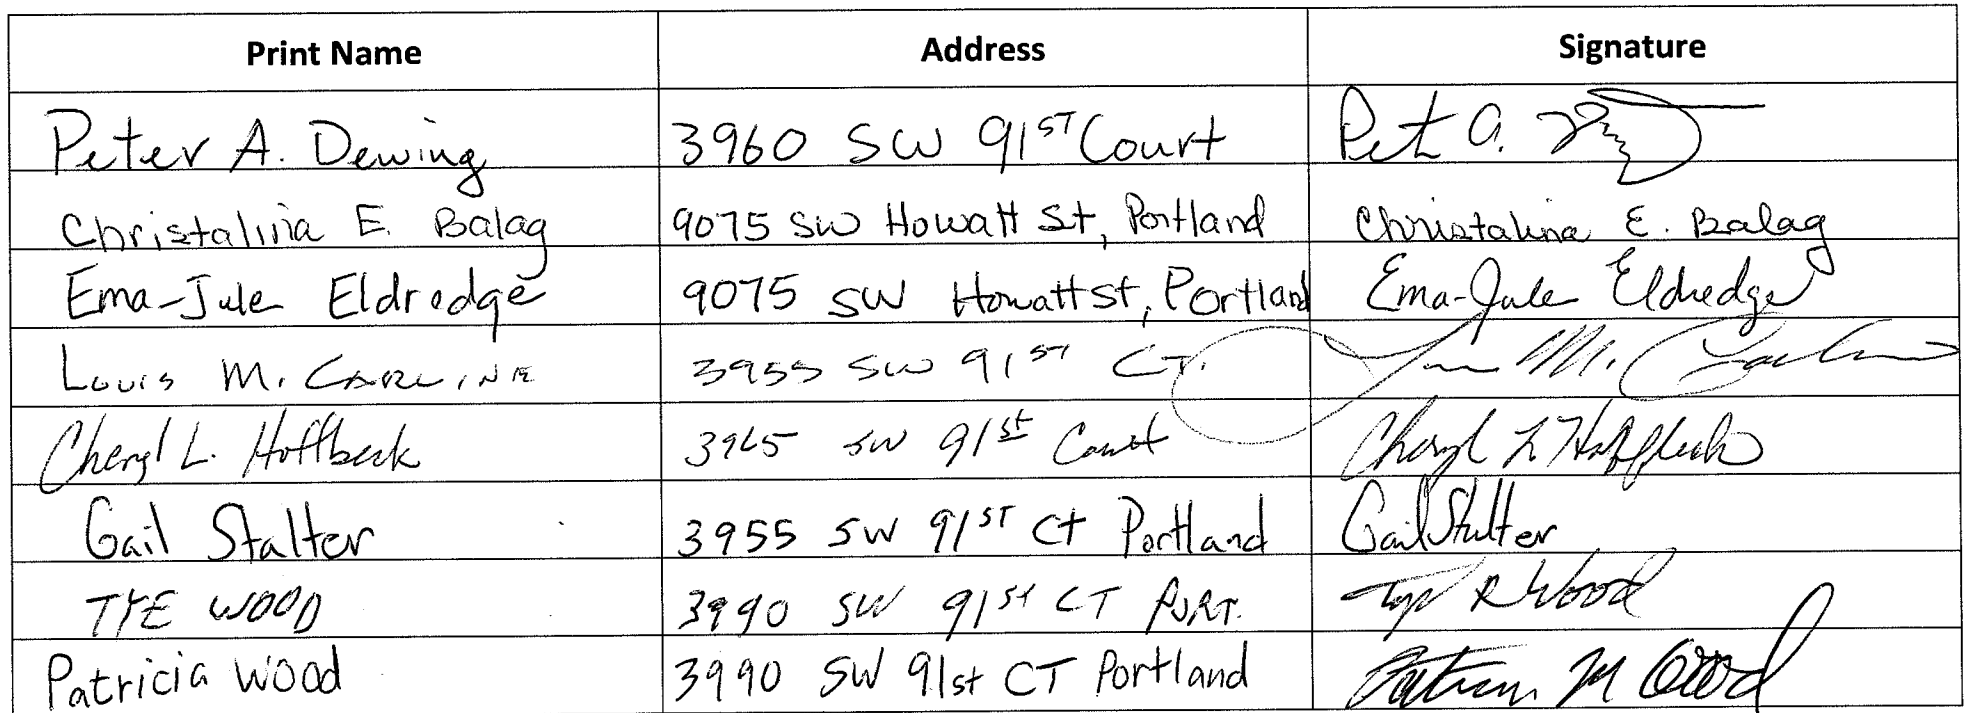 Print Name Address Signature
Peter A. Dewing 3960 SW 91ST Court Pet A.
Christalina E. Balag 9075 SW Howatt St, Portland Christalina E. Balag
Ema-Jule Eldredge 9075 SW Howatt St, Portland Ema-Jule Eldredge
Louis M. CARLINE 3955 SW 91ST CT. M.
Cheryl L. Hoffbeck SW 91st Court Cheryl L Hoffbeck
Gail Stalter 3955 SW 91ST CT Portland Gail Stalter
TYE WOOD 3990 SW 91st CT PORT. R Wood
Patricia Wood 3990 SW 91st CT Portland Patricia M Wood